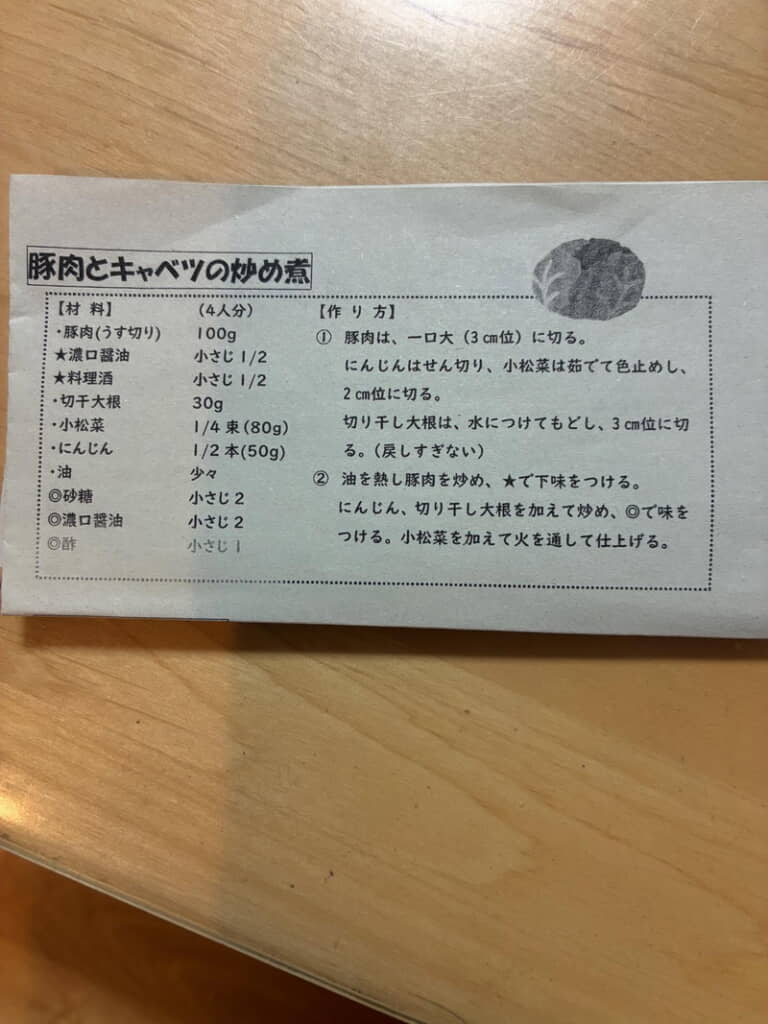 豚肉とキャベツの炒め煮
【材 料】 (4人分)
・豚肉(うす切り) 100g
★濃口醤油 小さじ1/2
★料理酒 小さじ1/2
・切干大根 30g
・小松菜 1/4束(80g)
・にんじん 1/2本(50g)
・油 少々
◎砂糖 小さじ2
◎濃口醤油 小さじ2
◎酢 小さじ1
【作 り 方】
① 豚肉は、一口大(3㎝位)に切る。
にんじんはせん切り、小松菜は茹でて色止めし、
2㎝位に切る。
切り干し大根は、水につけてもどし、3㎝位に切
る。(戻しすぎない)
② 油を熱し豚肉を炒め、★で下味をつける。
にんじん、切り干し大根を加えて炒め、◎で味を
つける。小松菜を加えて火を通して仕上げる。